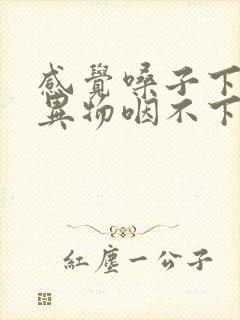 感覺嗓子下
異物咽不下
紅塵一公子